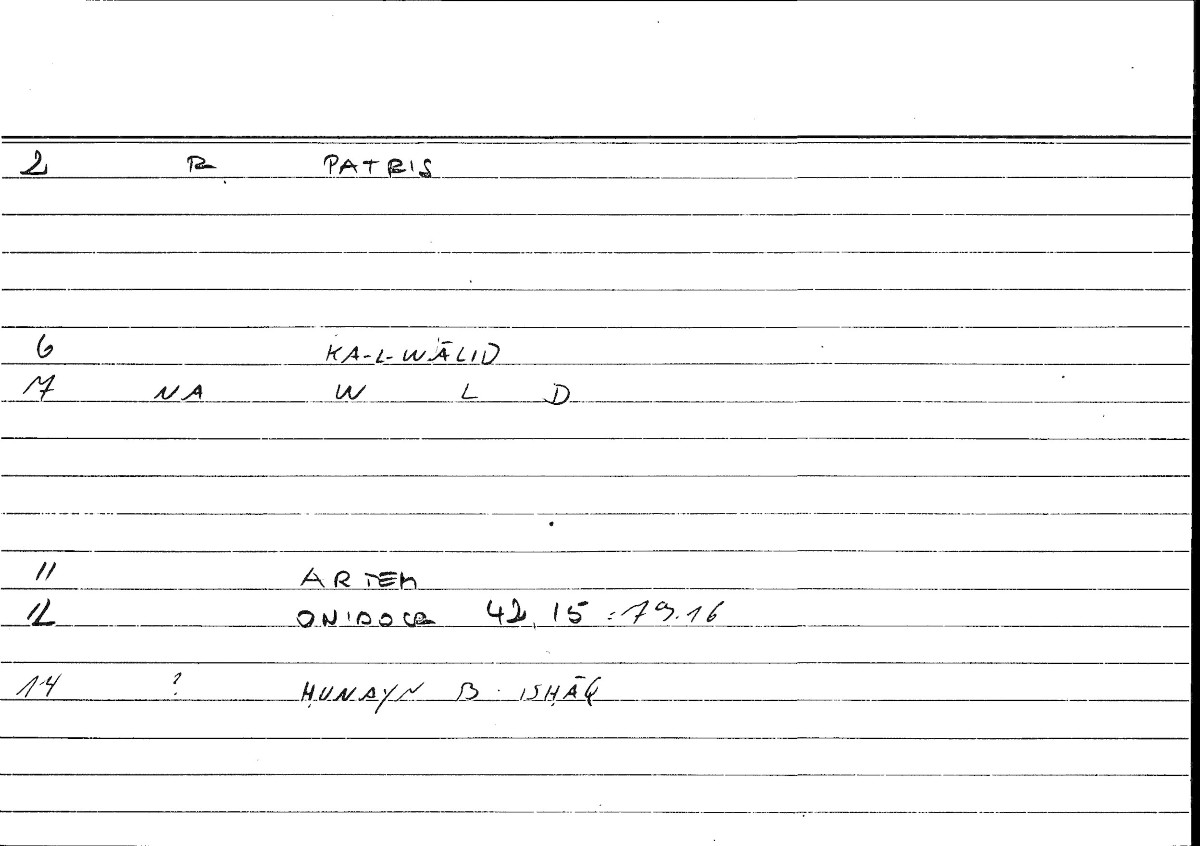 2 R PATRIS
6 KA-L-WĀLID
7 NA W L D
11 ARTEM
12 ONIDOCR 42,15 : 79.16
14 ? ḤUNAYN B. ISḤĀQ